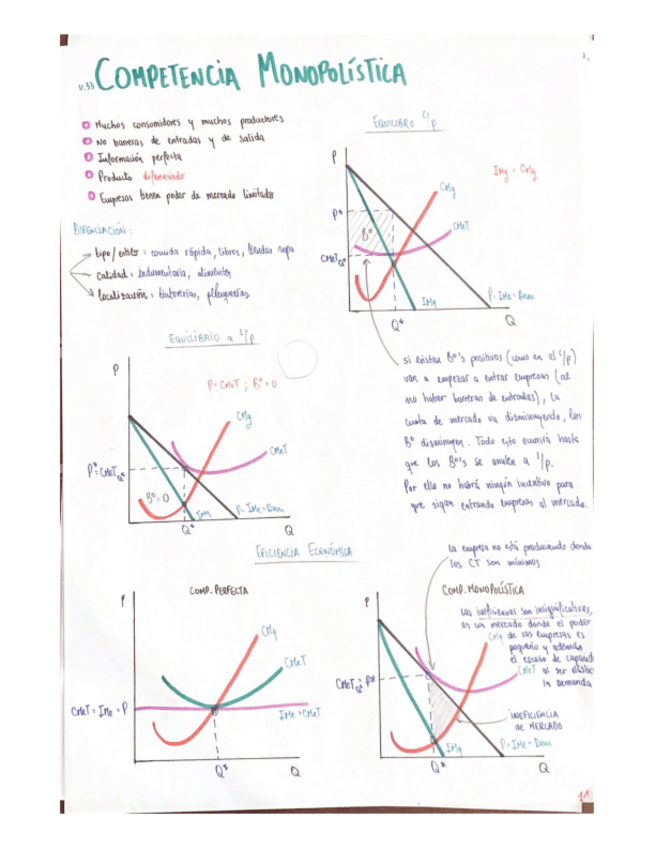 V.33 COMPETENCIA MONOPOLÍSTICA
Muchos consumidores y muchos productores
No barreras de entradas y de salida
Información perfecta
Producto diferenciado
Empresas tienen poder de mercado limitado
DIFENCIACIÓN:
tipo/estilo: comida rápida, libros, tiendas ropa
Calidad: Indumentaria, alimentos
localización: tintorerías, peluquerías
EQUILIBRO C/p
IMg = CMg
P
CMg
P*
Bº
CMeT
CMeT Q*
IMg
P=IMe=Dem
Q*
Q
si existen Bº's positivos (como en el C/p)
van a empezar a entrar empresas (al
no haber barreras de entradas), la
cuota de mercado va disminuyendo, los
Bº disminuyen. Todo esto ocurrirá hasta
que los Bº's se anulen a L/p.
Por ello no habrá ningún incentivo para
que sigan entrando empresas al mercado.
EQUILIBRIO a L/p
P
P=CMeT ; Bº=0
CMg
CMeT
P*=CMeT Q*
Bº=0
IMg
P=IMe=Dem
Q*
Q
EFICIENCIA ECONÓMICA
COMP. PERFECTA
P
CMg
CMeT
CMeT=IMe=P
IMe=CMeT
Q*
Q
la empresa no está produciendo donde
los CT son mínimos
COMP. MONOPOLÍSTICA
P
Las ineficiencias son insignificativas,
en un mercado donde el poder
CMg de las empresas es
pequeño y además
el exceso de capacidad
CMeT al ser elástica
la Demanda
CMeT Q*=P*
INEFICIENCIA
de MERCADO
IMg
P=IMe=Dem
Q*
Q